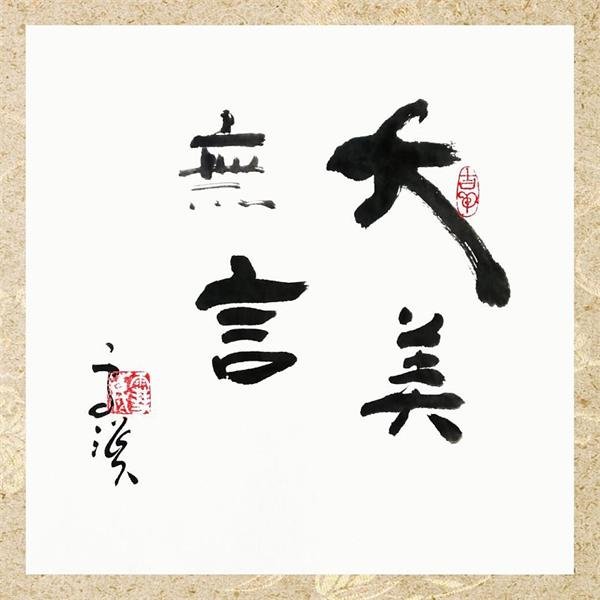 大美
無言